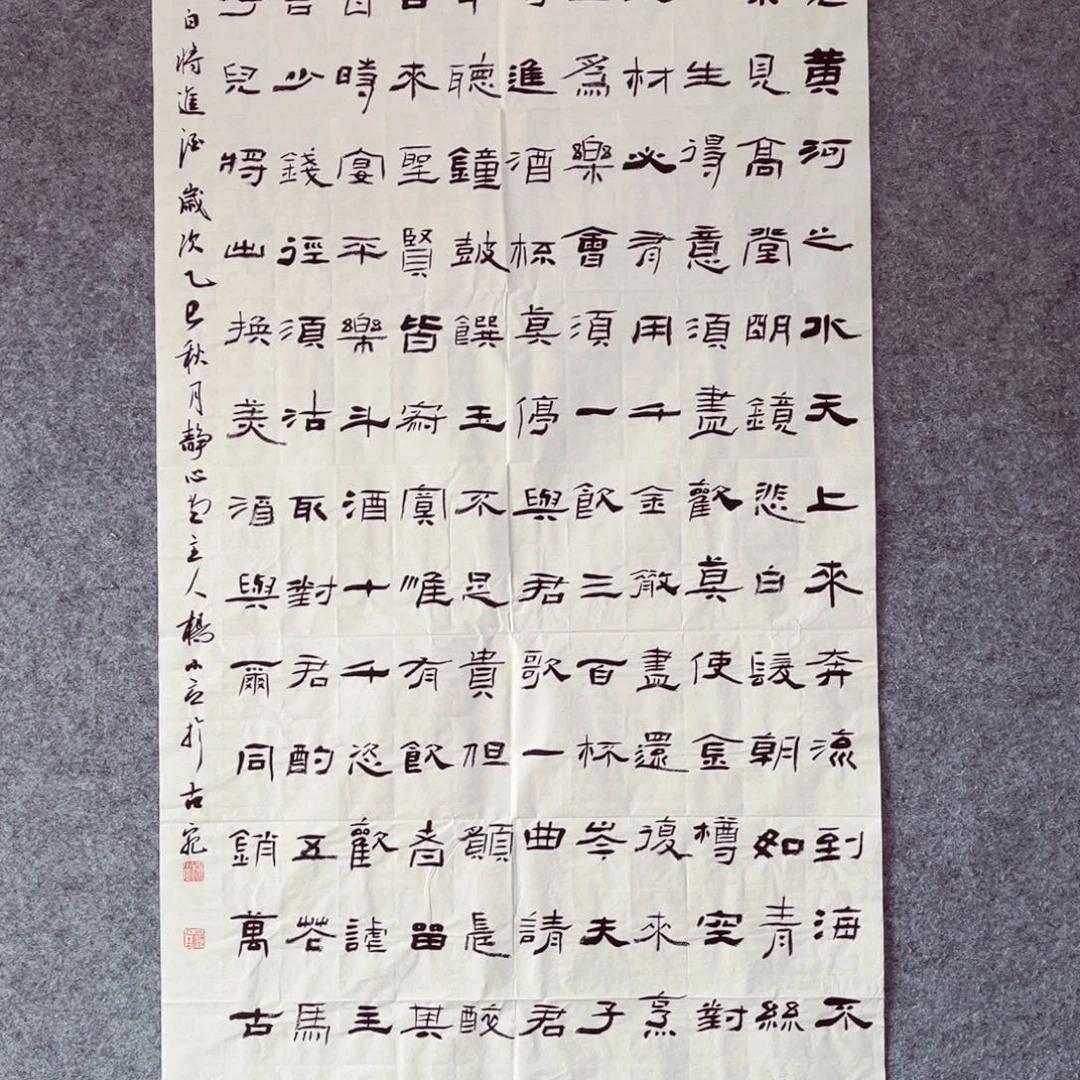 黃河之水天上來奔流到海不
見高堂明鏡悲白髮朝如青絲
生得意須盡歡莫使金樽空對
材必有用千金散盡還復來烹
爲樂會須一飲三百杯岑夫子
進酒杯莫停與君歌一曲請君
聽鐘鼓饌玉不足貴但願長醉
來聖賢皆寂寞惟有飲者留其
時宴平樂斗酒十千恣歡謔主
少錢徑須沽取對君酌五花馬
兒將出換美酒與爾同銷萬古
白將進酒歲次乙巳秋月靜心堂主人楊於古宛